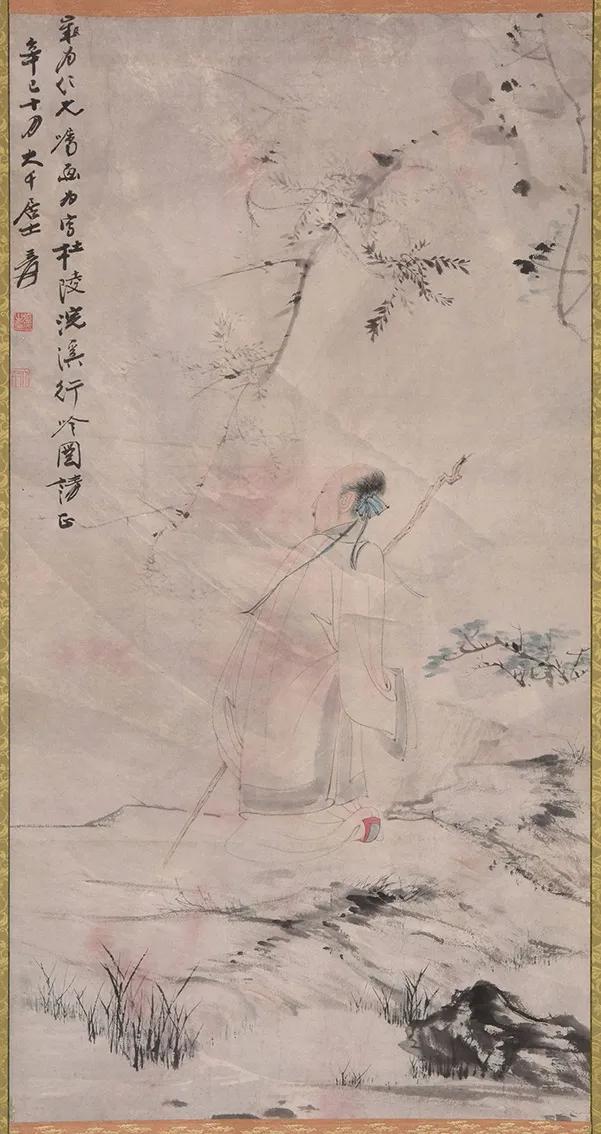 為仁兄囑畫為寫杜陵浣溪行吟圖請正
辛巳十月大千居士爰